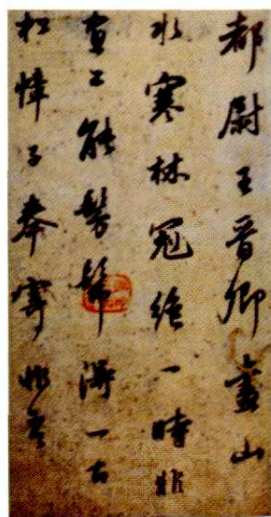 都尉王晉卿畫山
水寒林冠絕一時非
畫工能髣髴得一古
松幀子奉寄非吾